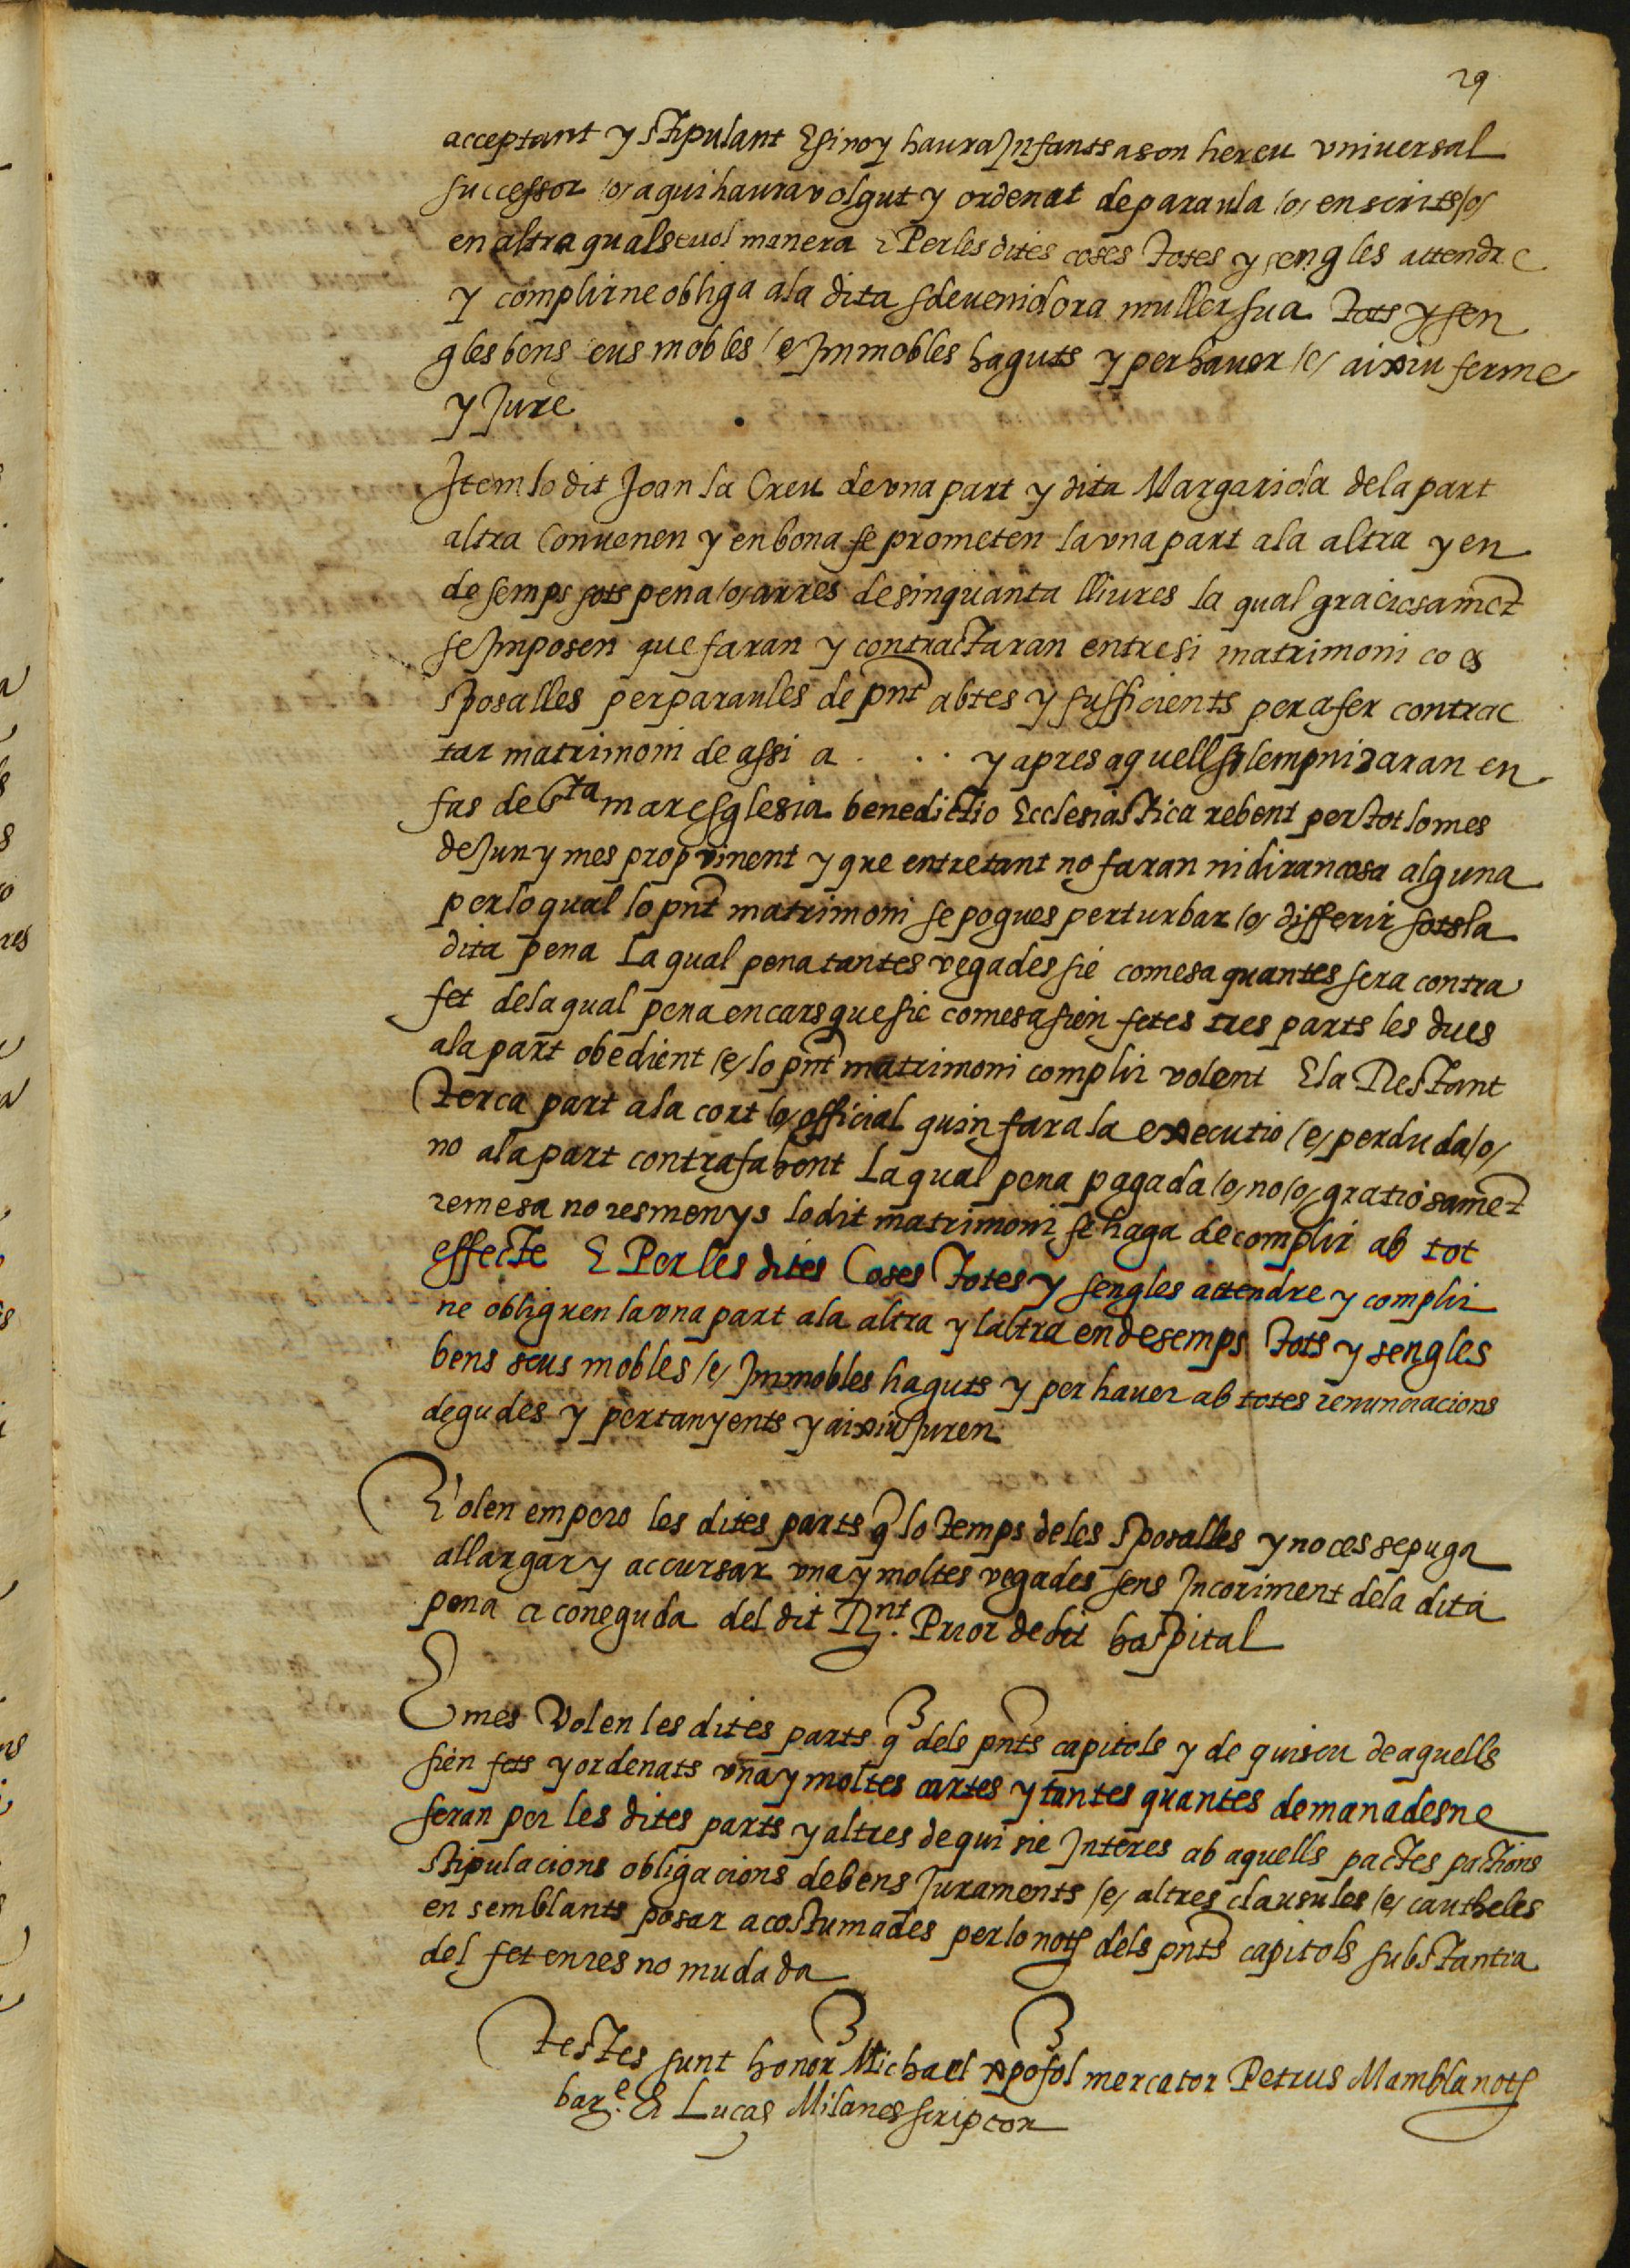 29
acceptant y stipulant E si noy haura Infants a son hereu vniuersal
successor /o/ a qui haura volgut y ordenat de paraula /o/ en scrits /o/
en altra qualseuol manera E Per les dites coses totes y sengles attendre
y complirne obliga ala dita sdeuenidora muller sua tots y sen
gles bens seus mobles /e/ Immobles haguts y per hauer /e/ aixiu ferme
y Jure
Item lo dit Joan la Creu de vna part y dita Margarida dela part
altra Conuenen y en bona fe prometen la vna part ala altra y en
desemps sots pena /o/ arres de sinquanta lliures la qual graciosamẽt
se Imposen que faran y contractaran entre si matrimoni co es
sposalles per paraules de pnt abtes y sufficients per a fer contrac
tar matrimoni de assi a . . . y apres aquell solempnizaran en
fas de Sta mare sglesia benedictio Ecclesiastica rebent per tot lo mes
de Juny mes propvinent y que entretant no faran ni diran cosa alguna
per lo qual lo pnt matrimoni se pogues perturbar /o/ differir sots la
dita pena La qual pena tantes vegades sie comesa quantes sera contra
fet dela qual pena en cars que sie comesa sien fetes tres parts les dues
ala part obedient /e/ lo pnt matrimoni complir volent E la Restant
terca part ala cort /o/ official quin fara la executio /e/ perduda /o/
no ala part contrafahent La qual pena pagada /o/ no /o/ gratiosamẽt
remesa no resmenys lo dit matrimoni se haga de complir ab tot
effecte E Per les dites Coses totes y sengles attendre y complir
ne obliguen la vna part ala altra y laltra en desemps tots y sengles
bens seus mobles /e/ Immobles haguts y per hauer ab totes renunciacions
degudes y pertanyents y aixiu Juren
Volen empero les dites parts q̃ lo temps deles sposalles y noces se puga
allargar y accursar vna y moltes vegades sens Incoriment dela dita
pena a coneguda del dit Rnt. Prior de dit hospital
E mes Volen les dites parts q̃ dels pnts capitols y de quiscu de aquells
sien fets y ordenats vna y moltes cartes y tantes quantes demanadesne
seran per les dites parts y altres de qui sie Interes ab aquells pactes pactions
stipulacions obligacions de bens Juraments /e/ altres clausules /e/ cautheles
en semblants posar acostumades per lo notj dels pnts capitols substantia
del fet en res no mudada
Testes sunt honor Michael xpofol mercator Petrus Mambla notj
bare. & Lucas Milanes scriptor